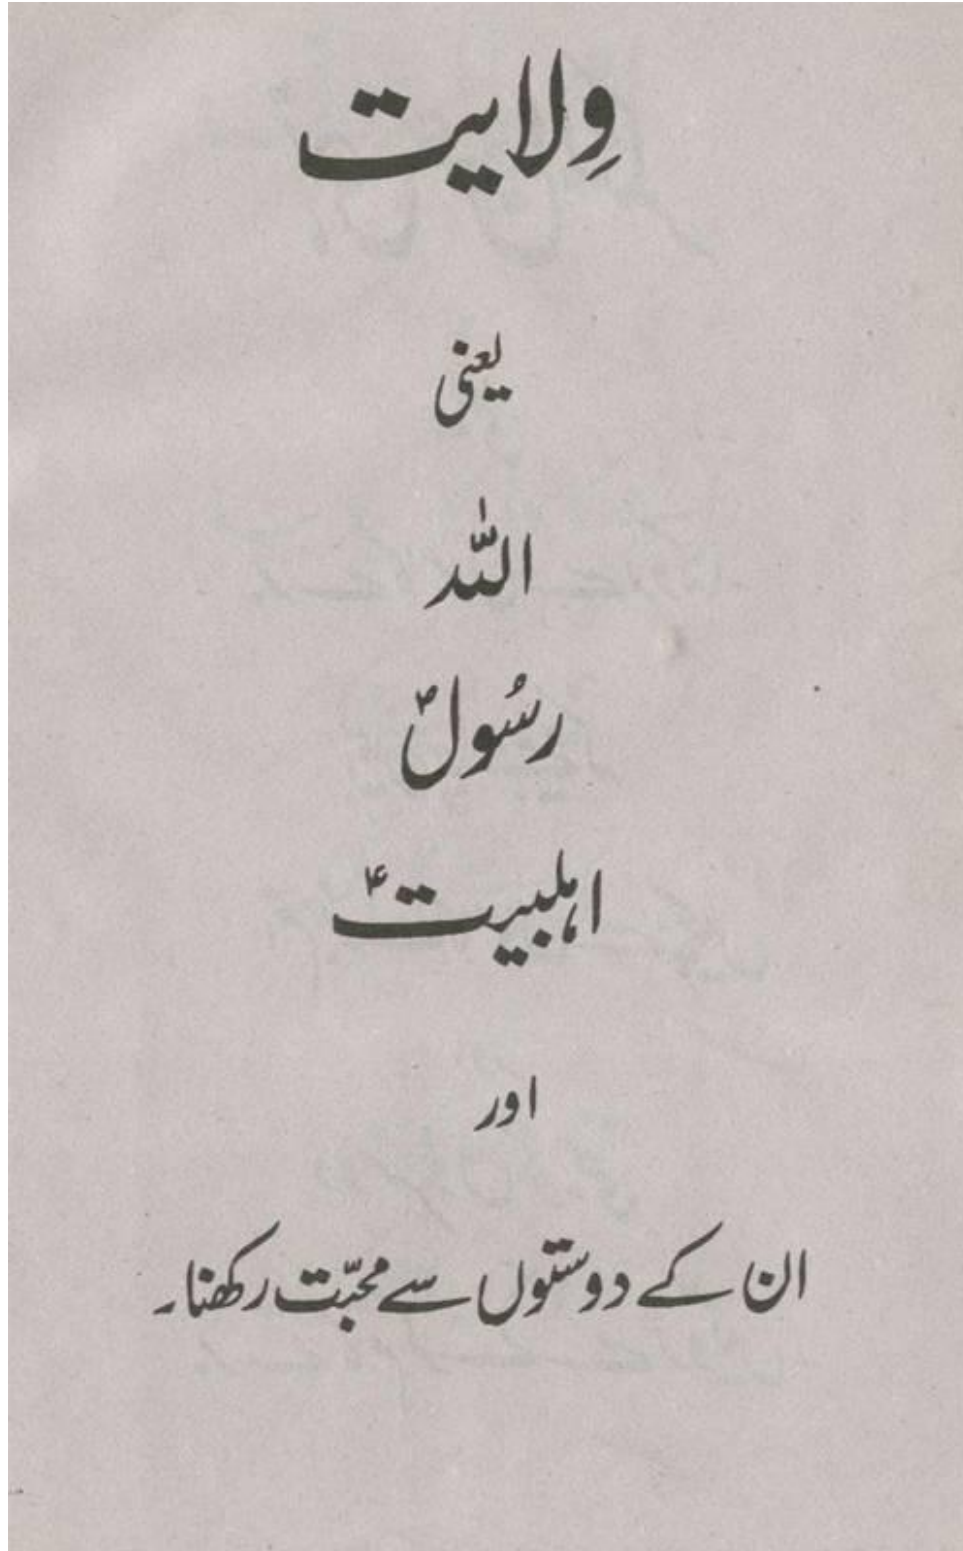 وِلایت
یعنی
اللّٰہ
رسُولؐ
اہلبیتؑ
اور
ان کے دوستوں سے محبّت رکھنا۔